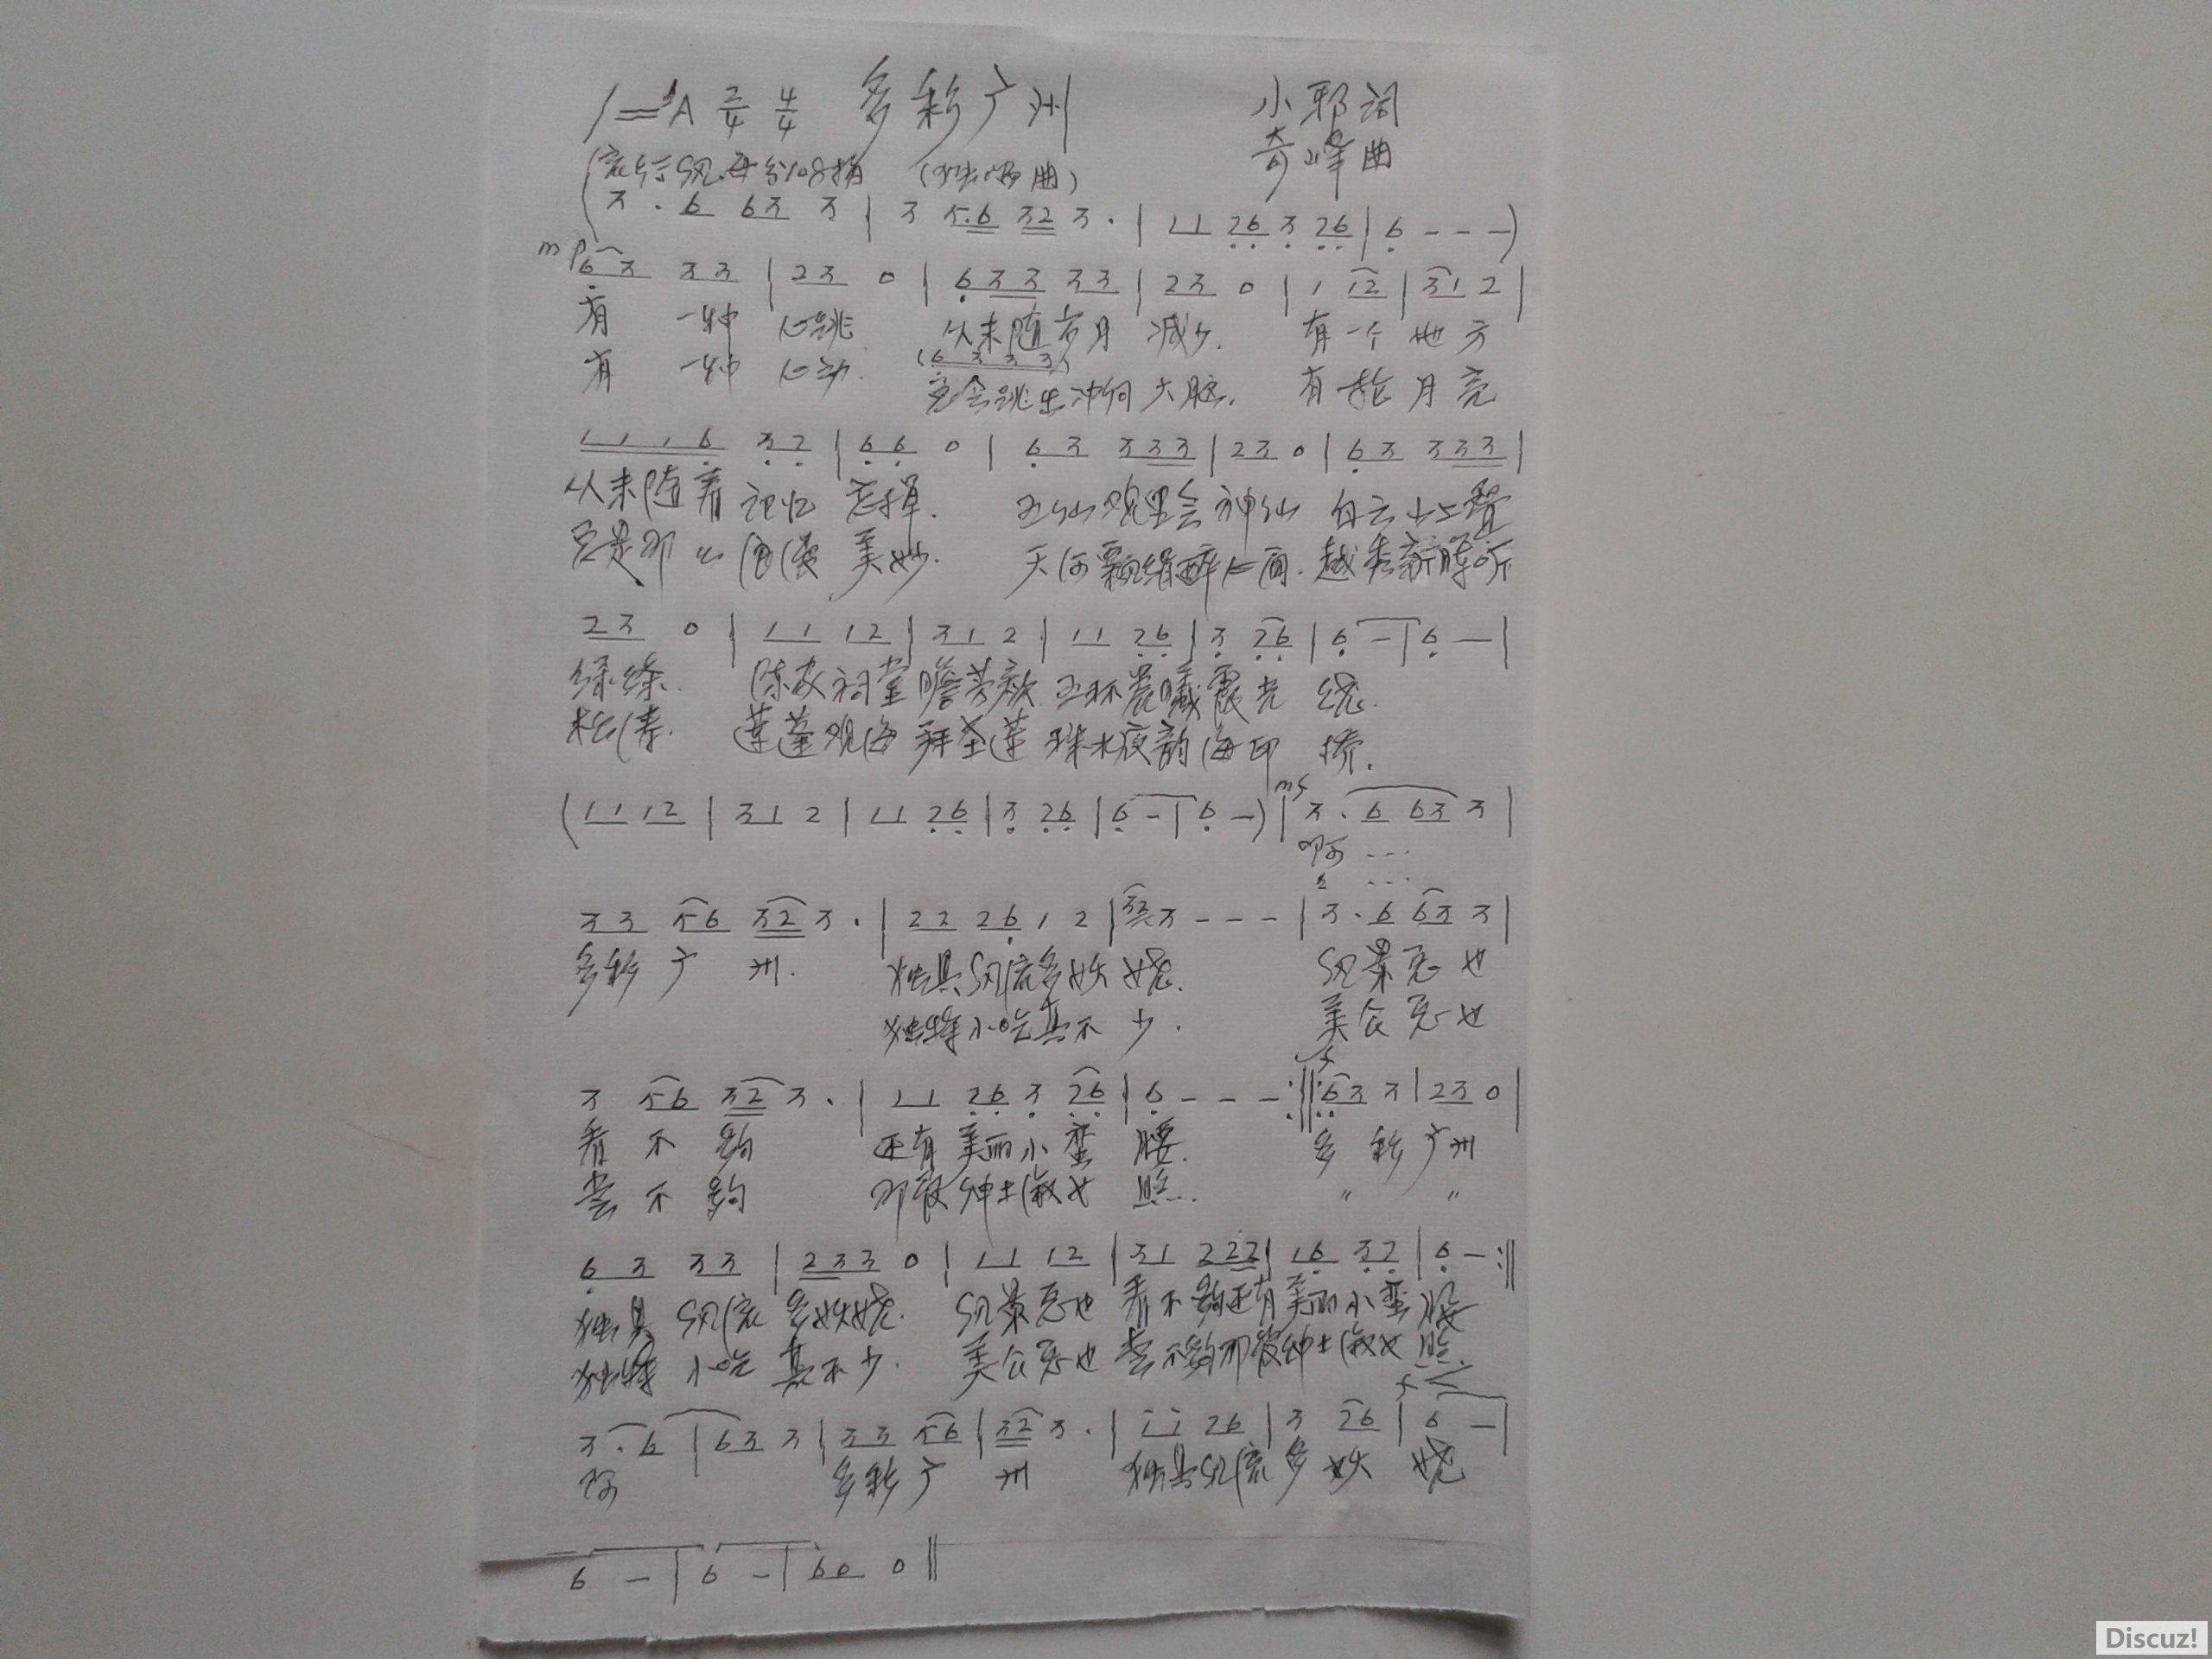 1=♭A 2/4 4/4 多彩广州 小邪词
奇峰曲
(流行风.每分108拍 (独唱曲)
(3 . 6 63 3 | 3 5.6 32 3 . | 11 26 3 26 | 6 - - -)
mp 63 33 | 23 0 | 633 33 | 23 0 | 1 12 | 31 2 |
有 一种 心跳. 从未随岁月 减少. 有一个 地方
有 一种 心动. (6 3 3 3)
竟会跳出冲向大脑. 有轮月亮
1116 32 | 66 0 | 63 333 | 23 0 | 63 333 |
从未随着记忆 忘掉. 五仙观里会神仙 白云山上登
总是那么浪漫 美妙. 天河飘绢醉心面. 越秀新晖听
23 0 | 11 12 | 31 2 | 11 26 | 3 26 | 6 - | 6 - |
绿绦. 陈家祠堂瞻芳 五环晨曦霞光 绕.
松涛. 莲蓬观海拜圣莲 珠水夜韵海印 桥.
(11 12 | 31 2 | 11 26 | 3 26 | 6 - | 6 -) | mf 3 . 6 63 3 |
啊 ...
...
33 56 32 3 . | 22 26 1 2 | 323 - - - | 3 . 6 63 3 |
多彩 广 州. 独具风流多妖 娆. 风景怎也
独特小吃真不 少. 美食怎也
3 56 32 3 . | 11 26 3 26 | 6 - - - :‖: f 63 3 | 23 0 |
看 不 够 还有美丽小蛮 腰. 多 彩 广州
尝 不 够 那被绅士淑女 照. 〃 〃
63 33 | 233 0 | 11 12 | 31 222 | 16 32 | 6 - :‖
独具 风流 多妖娆. 风景怎也 看不够还有美丽小蛮 腰
独特 小吃 真不少. 美食怎也 尝不够那被绅士淑女 照.
f
3 . 6 | 63 3 | 33 56 | 32 3 . | 11 26 | 3 26 | 6 - |
啊 多彩 广 州 独具风流多 妖 娆
6 - | 6 - | 60 0 ‖
Discuz!